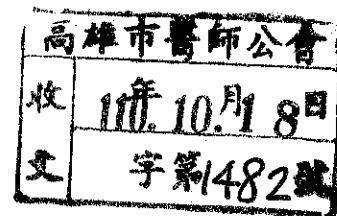 高雄市醫師公會
收文
110年10.月18日
字第1482號